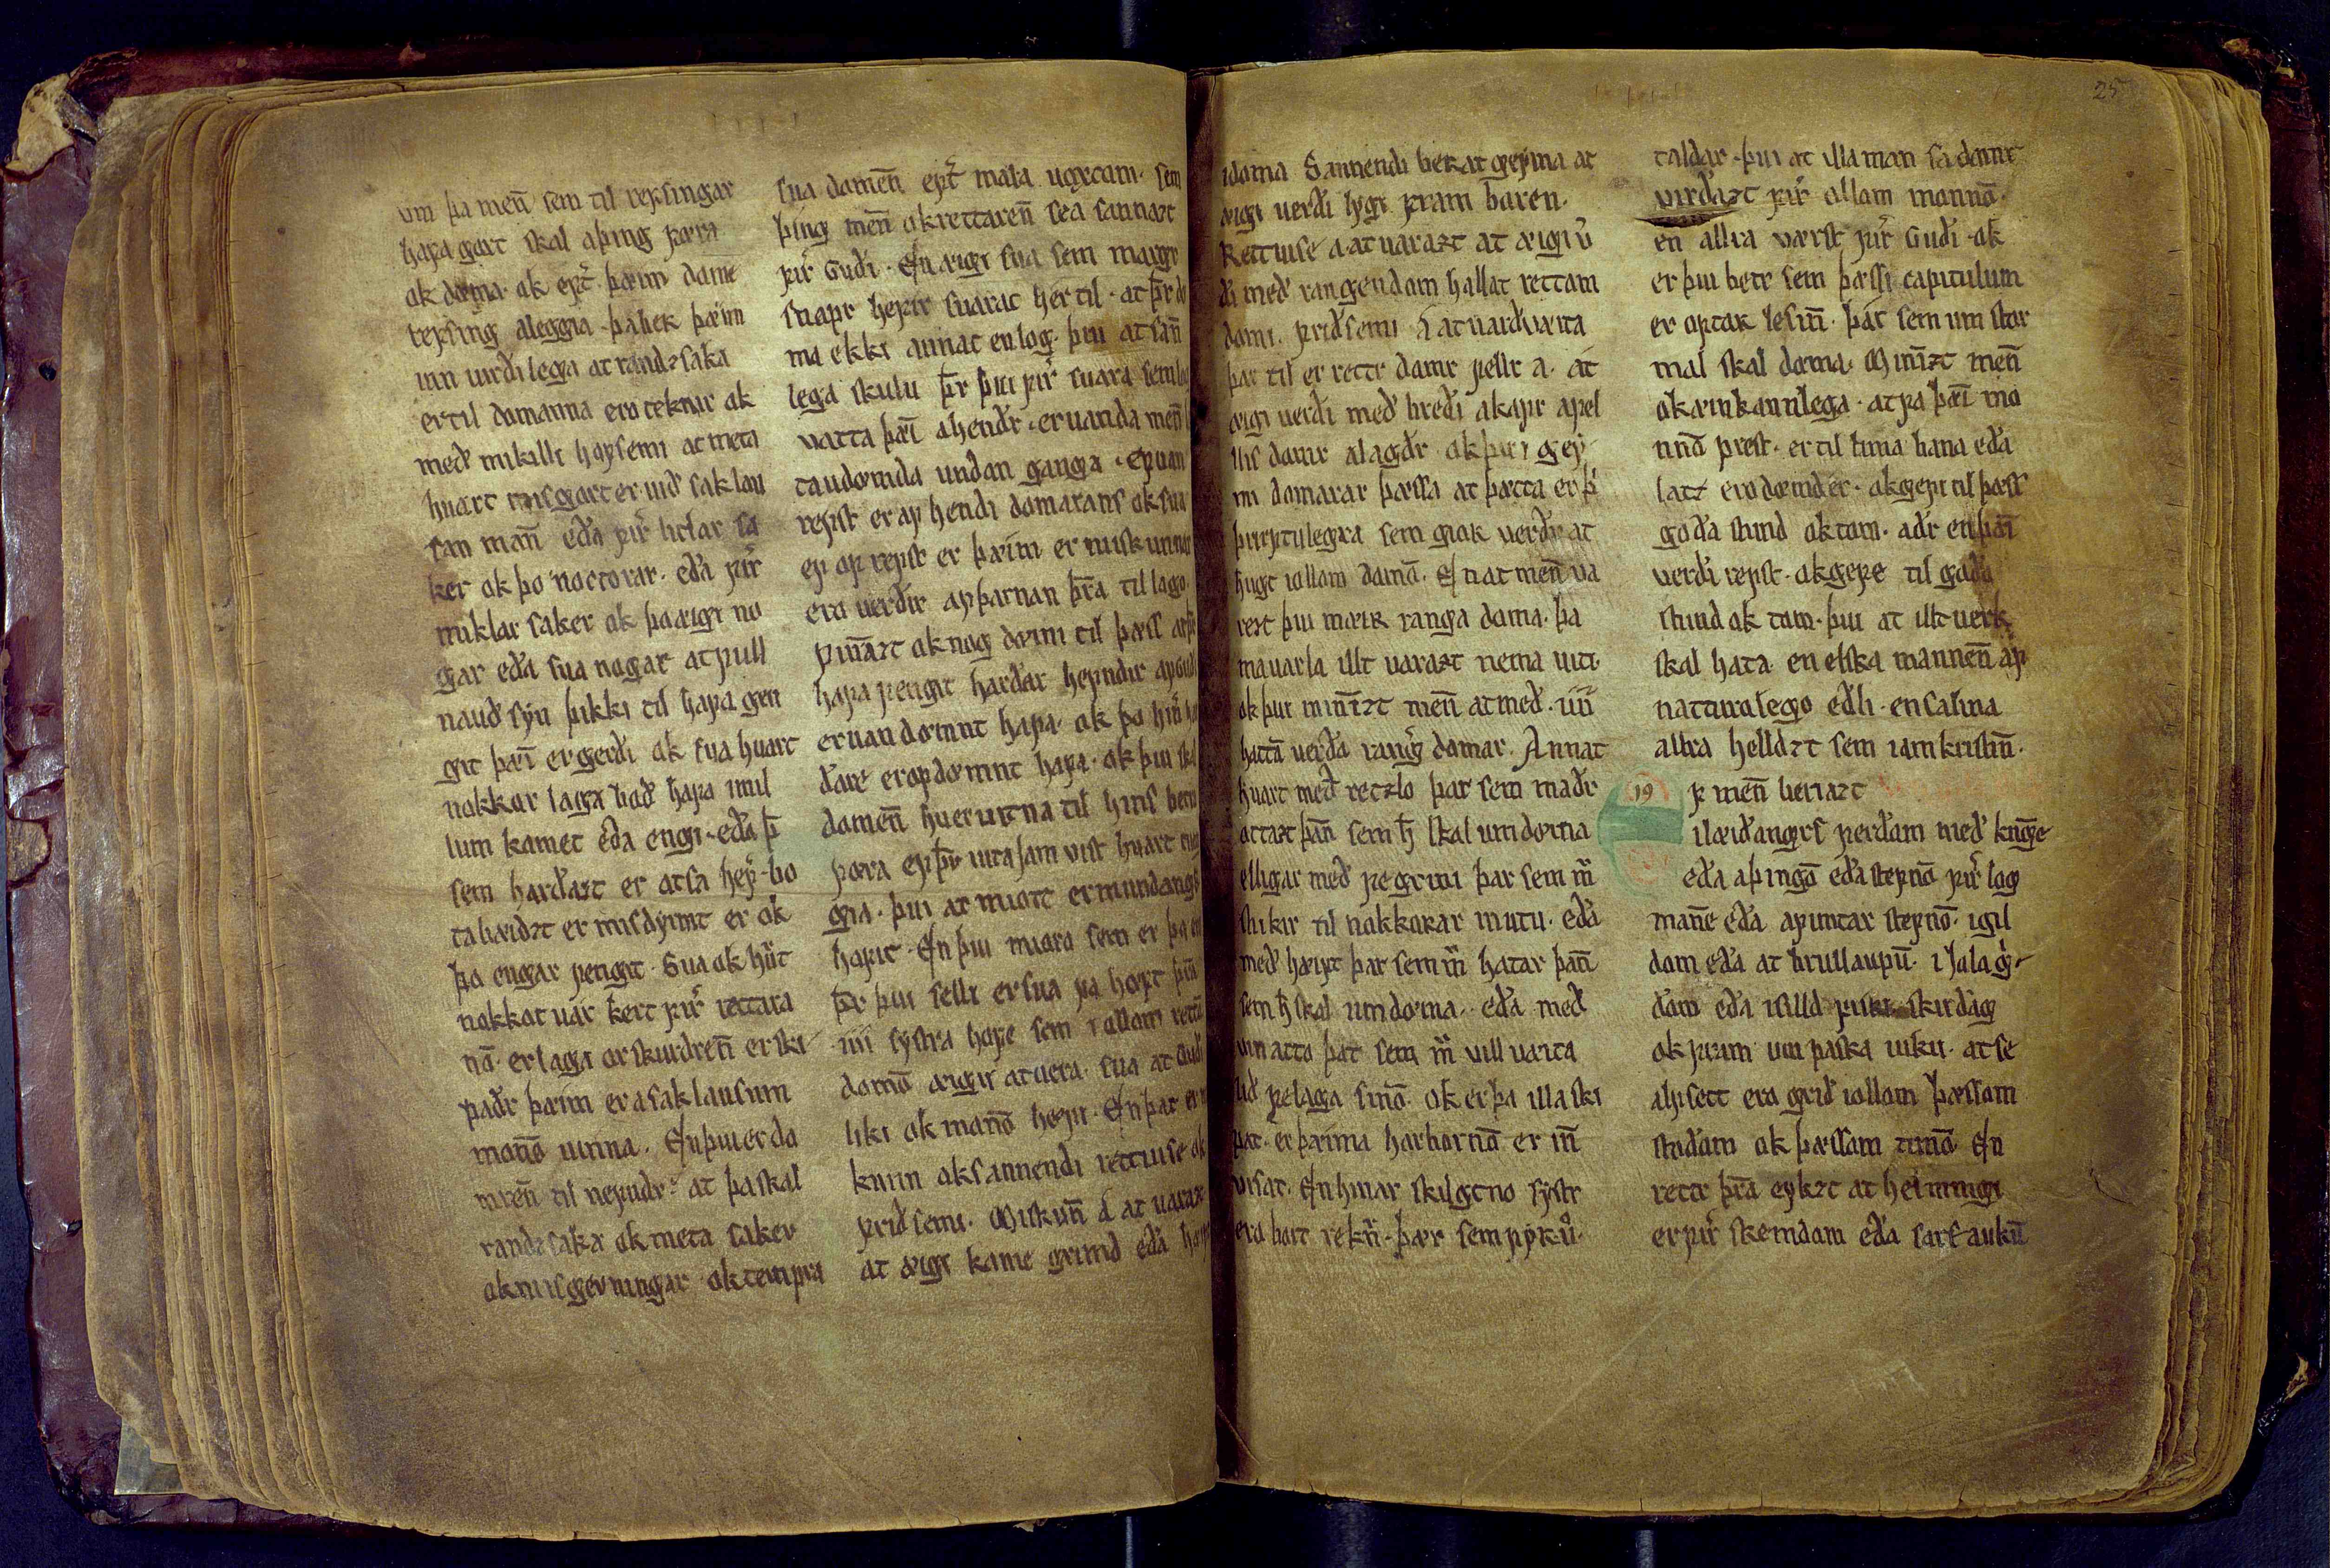 um þa menn̄ sem til refsingar
hafa gort skal aþing fœra
ok dœma· ok ept̄· þœim dome
refsing aleggia· þa lizk þœim
inn uirdilega at randzsaka
er til domanna ero teknir ok
med mikilli hofsemi at meta
huart misgort er uid saklau
san man̄ eda fir̄ litlar sa
ker ok þo noctorar· eda fir̄
miklar saker ok þo æigi no
gar eda sua nogar at full
naud syn þikki til hafa gen
git þæi er gerdi ok sua huart
nakkor laga bod hafa imil
lum komet eda engi· eda þ̄
sem hardazt er at sa hefir bo
ta bœidzt er misdyrmt er ok
þo engar fengit· Sua ok huat
nokkot uar kert fir̄ rettara
nō· er laga orskurdren̄ er ski
padr þœim era saklausum
monnō uinna· En þui er do
mren̄ til nefndr· at þa skal
randzsaka ok meta saker
ok misgerningar ok tempra
sua domen̄ ept̄ mala uoxtom· sem
þing men̄ ok rettaren̄ sea sannazt
fir̄ Gudi· En æigi sua sem margr
suapr hefir suarat her til· at þr̄ dœ
ma ekki annat en log· þui at san̄
lega skulu þr̄ þui fir̄ suara sem
vatta þæi a hendr· er uanda men̄
taudomda undan ganga· ef uan
refst er af hendi domarans ok sua
ef of refst er þœim er miskunnar
ero uerdir af þarnan þr̄a til laga
pin̄azt ok nog dœmi til þess at þr̄
hafa fengit hardar hefndir af gudi
er uan domt hafa· ok þo hin̄
dare er of dœmt hafa· ok þui skal
domen̄ huer uitna til hins betra
fœra ef þr̄ uita iam uist huart
gra· þui at miott er mundangs
hofit· En þui maara sem er
þr̄ þui selli er sua fa hoft þui
iiii systra hofe sem i ollom rettū
domō æigir at uera· sua at Gudi
liki ok monnō hefir· En þar er
kunn ok sannendi rettuise ok
fridsemi· Miskun̄ a at uaraz
at æigi kome grimd eda
idoma Sannendi ber at gœyma at
æigi uerdi lygi fram baren·
Rettuise a at uarazt at æigi ū
di med rangendom hallat rettom
domi· Fridsemi a at uardueita
þar til er rettr domr fellr a· at
æigi uerdi med bredi akafr afel
lis domr alagdr ok þui gey
mi domarar þœssa at þœtta er þ̄
þurftulegra sem giok uerdr at
hugt i ollom domō· En at men̄ ua
rezt þui mœir ranga doma· þa
ma uarla illt uarazt nema uiti·
ok þui min̄izt men̄ at med· iiii
hattō uerda rangir domar· Annat
huart med rezlo þar sem madr
ottazt þan̄ sem h̄ skal um dœma
elligar med fegirni þar sem m̄
slikir til nakkorar mutu· eda
med hæift þar sem m̄ hatar þan̄
sem h̄ skal um dœma· eda med
uin atto þat sem m̄ uill uœita
lid felaga sinō ok er þa illa ski
pat· er þœima horbornō er in̄
uisat· En hinar skilgetno systr
ero bort rekn̄· þœr sem fyrr ū·
taldar· þui at illa man sa domr
virdazt fir̄ ollom monnō·
en allra værst fir̄ Gudi· ok
er þui betr sem þœssi capitulum
er optar lesin̄· þar sem um stor
mal skal dœma· Min̄izt men̄
ok œinkannlega· at fa þæi mo
nnō prest· er til lima bana eda
latz ero dœmder· ok gefi til þœss
goda stund ok tom· adr en þæi
verdi refst· ok gefe til goda
stund ok tom· þui at illt uerk
skal hata en elska mannen̄ af
naturalego edli· en saluna
allra helldzt sem iamkristin̄·
19 F men̄ beriazt
ilœidangrs ferdom med knīge
eda aþingō eda stefnō fir̄ log
man̄e eda a puntar stefnō· i gil
dom eda at brullaupū· i Jolag·
dom eda i uilld fir̄ skirdag
ok fram um paska uiku· at se
alfsett ero grid i ollom þœssom
stodom ok þœssom timō· En
rettr þr̄a eykzt at helmingi
er fir̄ skemdom eda sars aukū